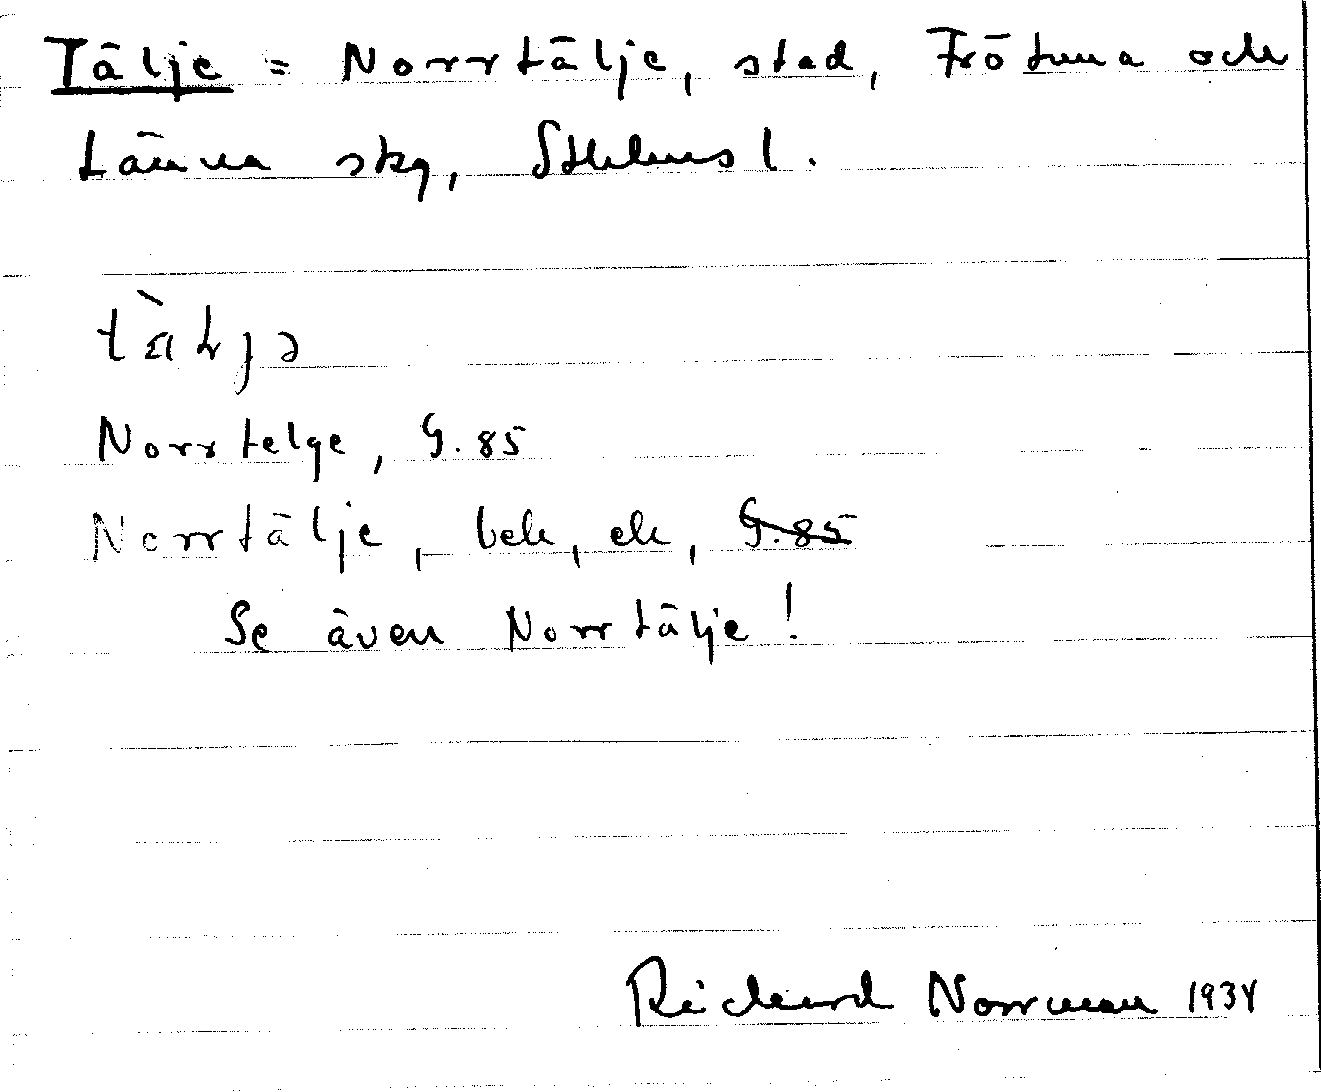 Tälje = Norrtälje, stad, Frötuna och
Länna skg, Sthlms l.
tä̀ljə
Norrtelge, G. 85
Norrtälje, bek, ek, G. 85
Se även Norrtälje!
Richard Norrman 1934